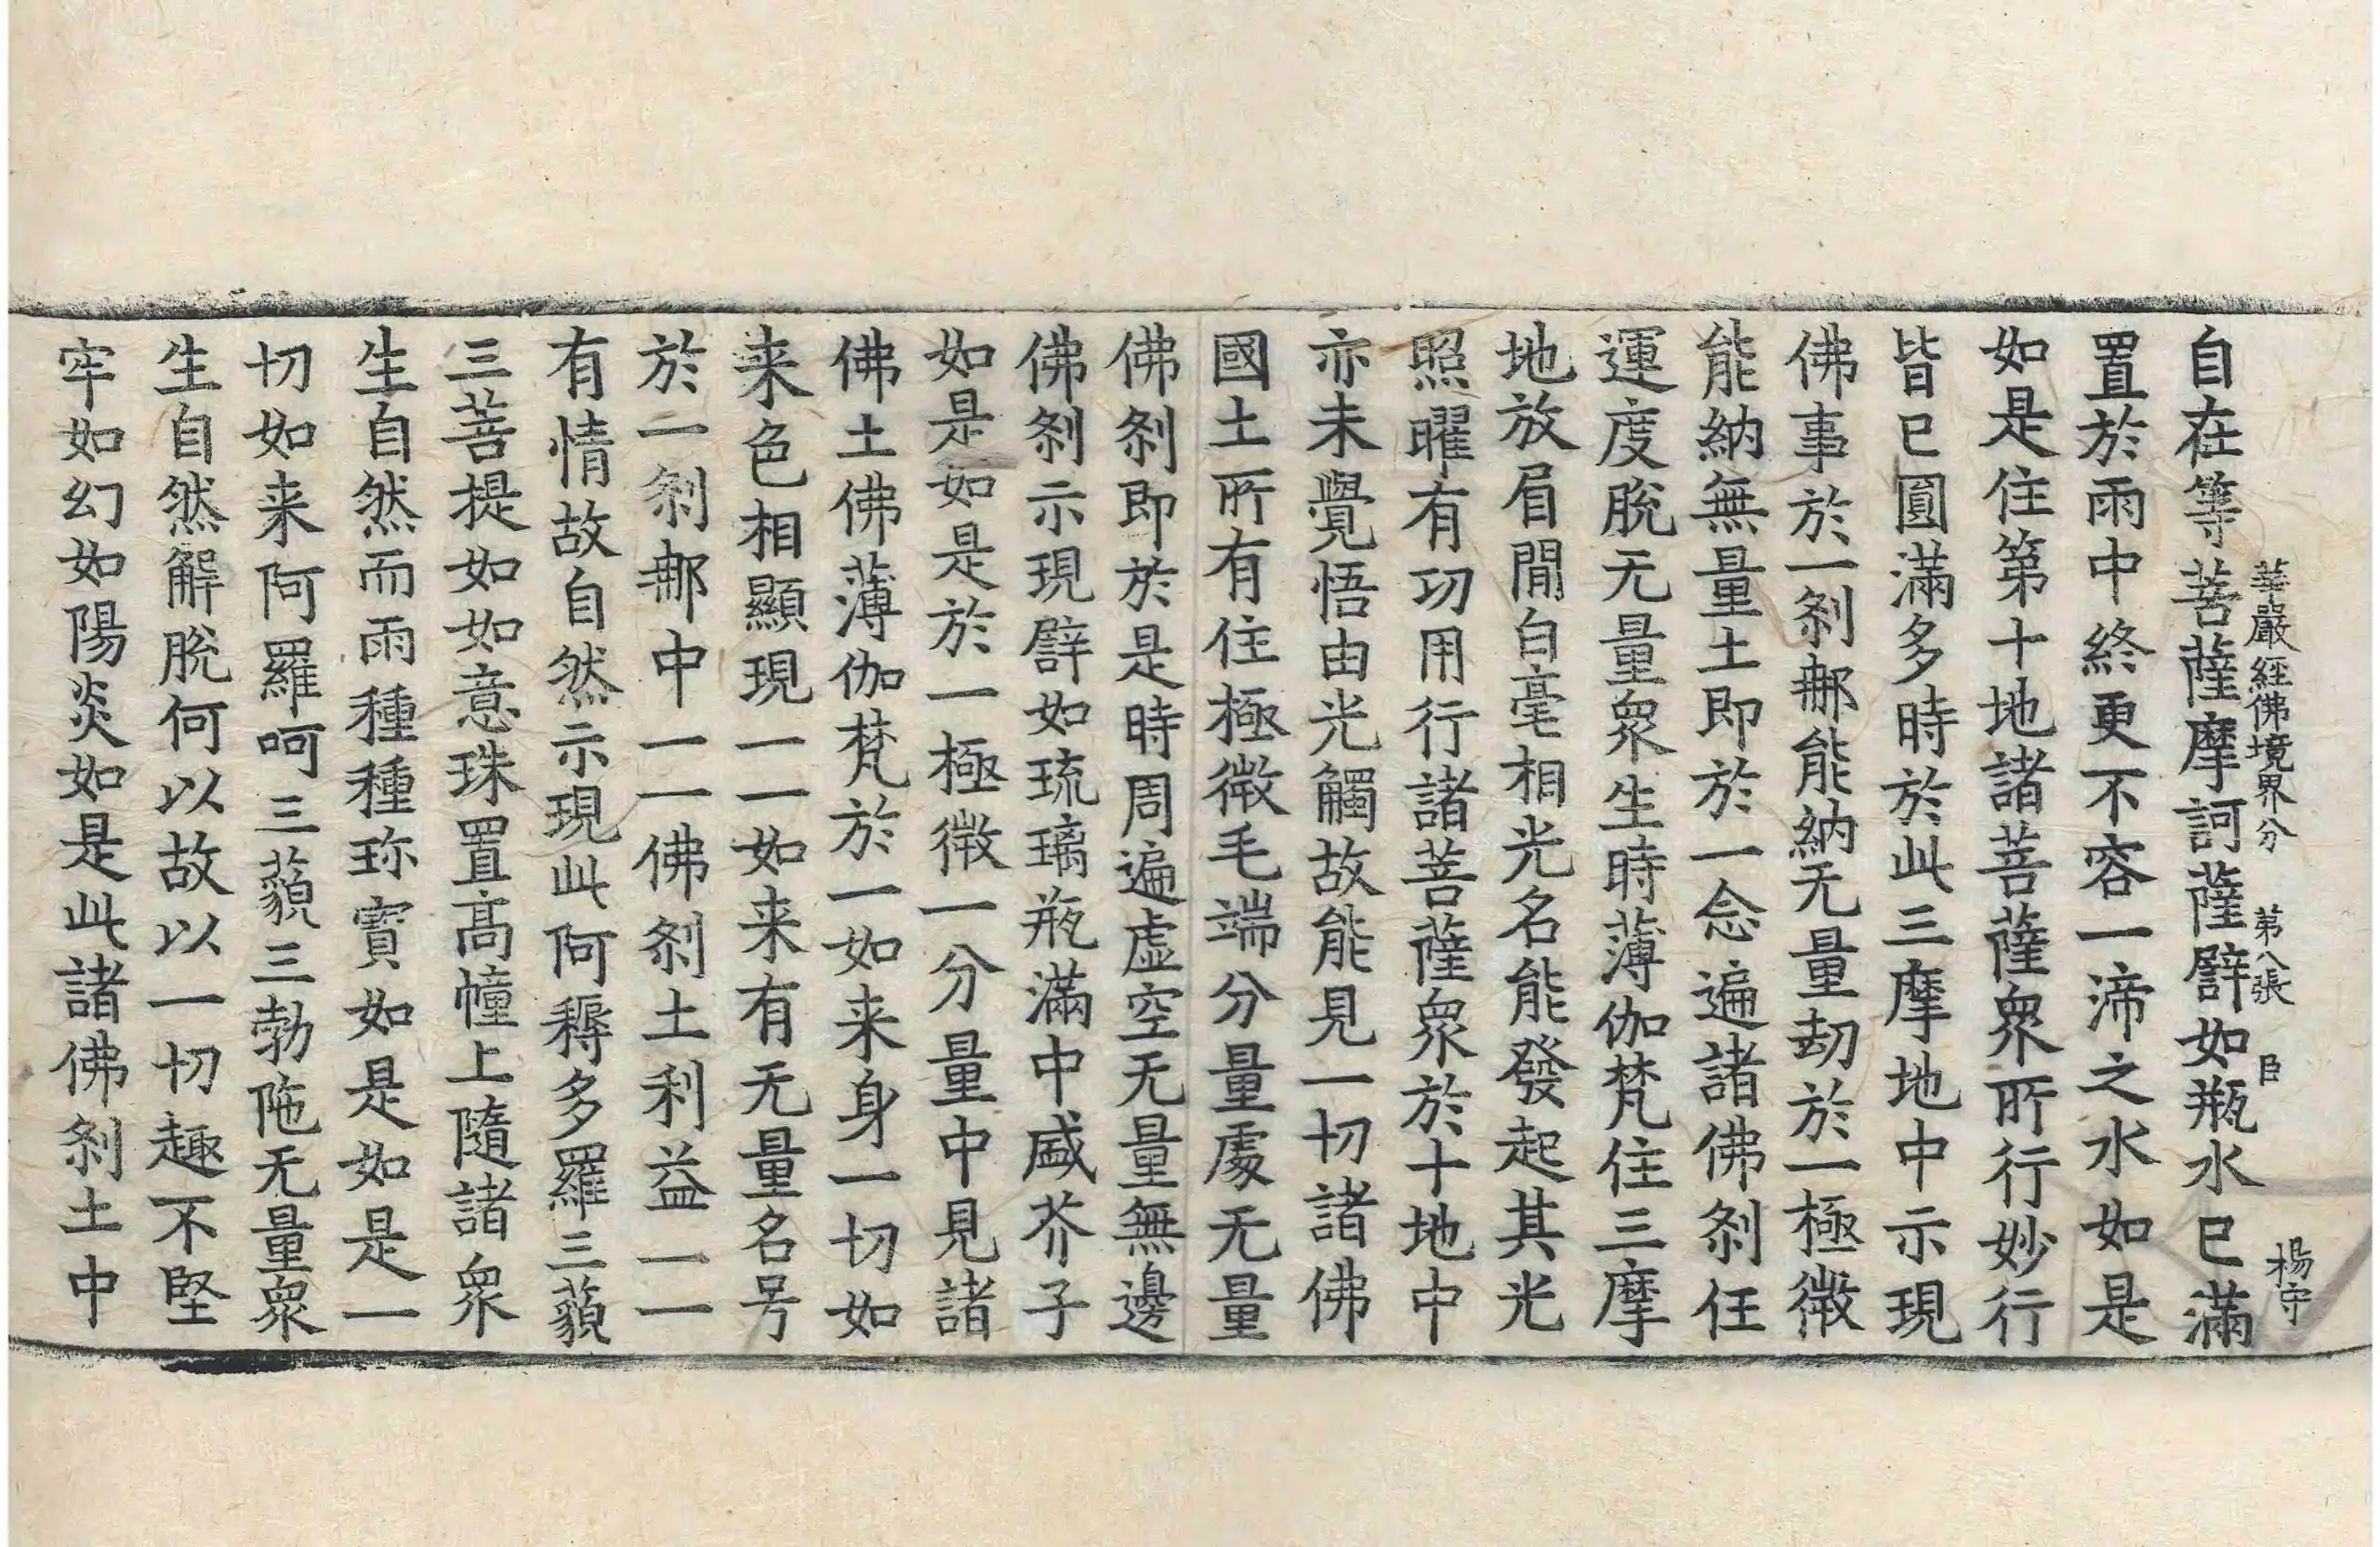 華嚴經佛境界分 第八張 臣 楊守
自在等菩薩摩訶薩譬如瓶水已滿
置於雨中終更不容一渧之水如是
如是住第十地諸菩薩衆所行妙行
皆已圓滿多時於此三摩地中示現
佛事於一刹那能納无量劫於一極微
能納無量土即於一念遍諸佛刹任
運度脫无量衆生時薄伽梵住三摩
地放眉間白毫相光名能發起其光
照曜有功用行諸菩薩衆於十地中
亦未覺悟由光觸故能見一切諸佛
國土所有住極微毛端分量處无量
佛刹即於是時周遍虛空无量無邊
佛刹示現譬如琉璃瓶滿中盛芥子
如是如是於一極微一分量中見諸
佛土佛薄伽梵於一如来身一切如
来色相顯現一一如来有无量名号
於一刹那中一一佛刹土利益一一
有情故自然示現此阿耨多羅三藐
三菩提如如意珠置高幢上隨諸衆
生自然而雨種種珎寶如是如是一
切如来阿羅呵三藐三勃陁无量衆
生自然解脫何以故以一切趣不堅
牢如幻如陽炎如是此諸佛刹土中